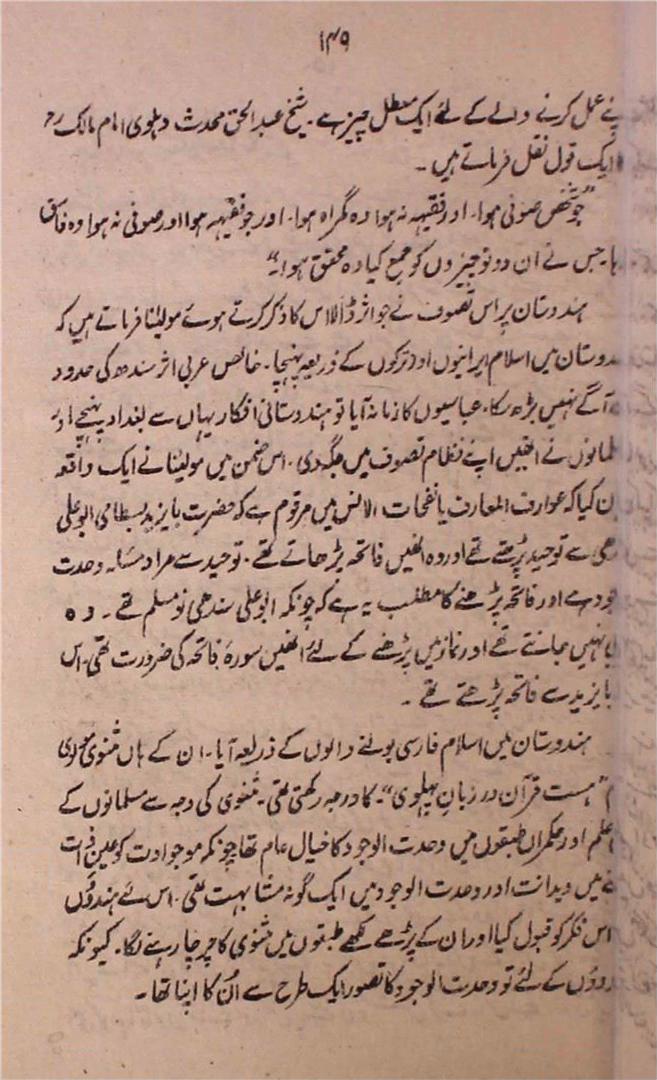 ۱۴۹
عمل کرنے والے کے لئے ایک معطل چیز ہے۔ شیخ عبدالحق محدث دہلوی امام مالک رح
ایک قول نقل فرماتے ہیں۔
”جو شخص صوفی ہوا۔ اور فقیہہ نہ ہوا وہ گمراہ ہوا۔ اور جو فقیہہ ہوا اور صوفی نہ ہوا وہ فاسق
جس نے ان دونو چیزوں کو جمع کیا وہ محقق ہوا۔“
ہندوستان پر اس تصوف نے جو اثر ڈالا اس کا ذکر کرتے ہوئے مولینا فرماتے ہیں کہ
میں اسلام ایرانیوں اور ترکوں کے ذریعہ پہنچا۔ خالص عربی اثر سندھ کی حدود
آگے نہیں بڑھ سکا۔ عباسیوں کا زمانہ آیا تو ہندوستانی افکار یہاں سے بغداد پہنچے اور
نے انہیں اپنے نظام تصوف میں جگہ دی۔ اس ضمن میں مولینا نے ایک واقعہ
کیا کہ عوارف المعارف یا نفحات الانس میں مرقوم ہے کہ حضرت بایزید بسطامی ابو علی
سے توحید پڑھتے تھے اور وہ انہیں فاتحہ پڑھاتے تھے۔ توحید سے مراد مسئلہ وحدت
ہے اور فاتحہ پڑھنے کا مطلب یہ ہے کہ چونکہ ابو علی سندھی نو مسلم تھے۔ وہ
نہیں جانتے تھے اور نماز میں پڑھنے کے لئے انہیں سورۂ فاتحہ کی ضرورت تھی۔ اس
بایزید سے فاتحہ پڑھتے تھے۔
ہندوستان میں اسلام فارسی بولنے والوں کے ذریعہ آیا۔ ان کے ہاں مثنوی مولوی
”ہست قرآن در زبان پہلوی“۔ کا درجہ رکھتی تھی۔ مثنوی کی وجہ سے مسلمانوں کے
اور حکمراں طبقوں میں وحدت الوجود کا خیال عام تھا چونکہ موجودات کو عین ذات
میں ویدانت اور وحدت الوجود میں ایک گونہ مشابہت تھی۔ اس لئے ہندوؤں
اس فکر کو قبول کیا اور ان کے پڑھے لکھے طبقوں میں مثنوی کا چرچا رہنے لگا۔ کیونکہ
کے لئے تو وحدت الوجود کا تصور ایک طرح سے اُن کا اپنا تھا۔